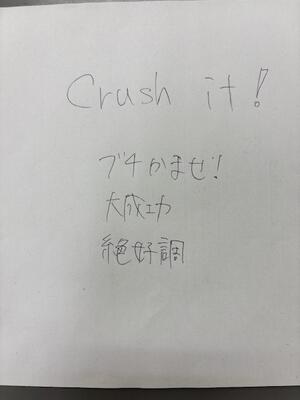 Crush it!
ブチかませ!
大成功
絶好調